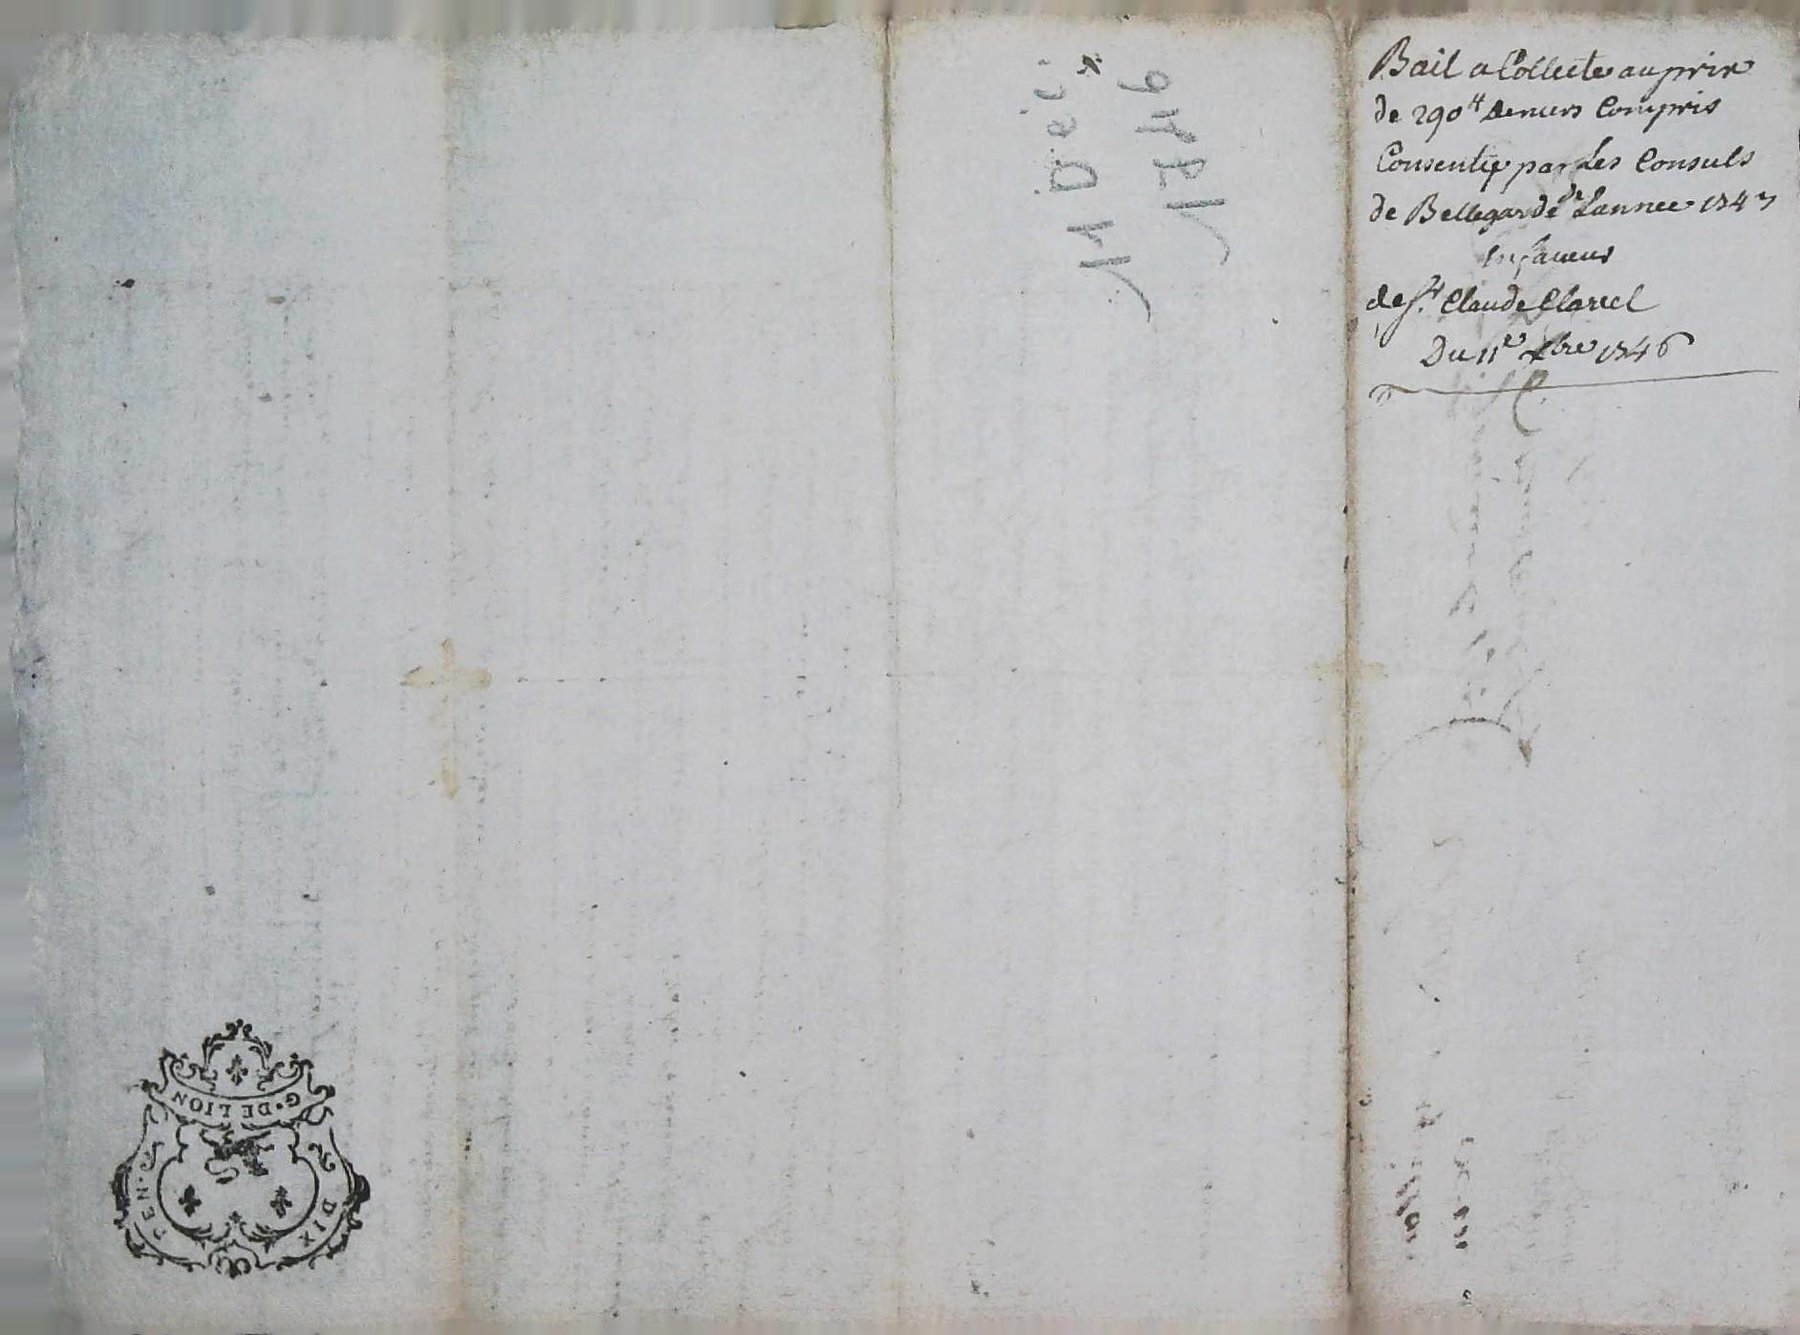 Bail a Collecte au prix
de 290ᵗᵗ deniers Compris
Consentie par Les Consuls
de Bellegarde de Lannee 1747
En faveur
de Sʳ. Claude Clavel
Du 11ᵉ xbre 1746
1746
11 D
G·DE LION
DIX